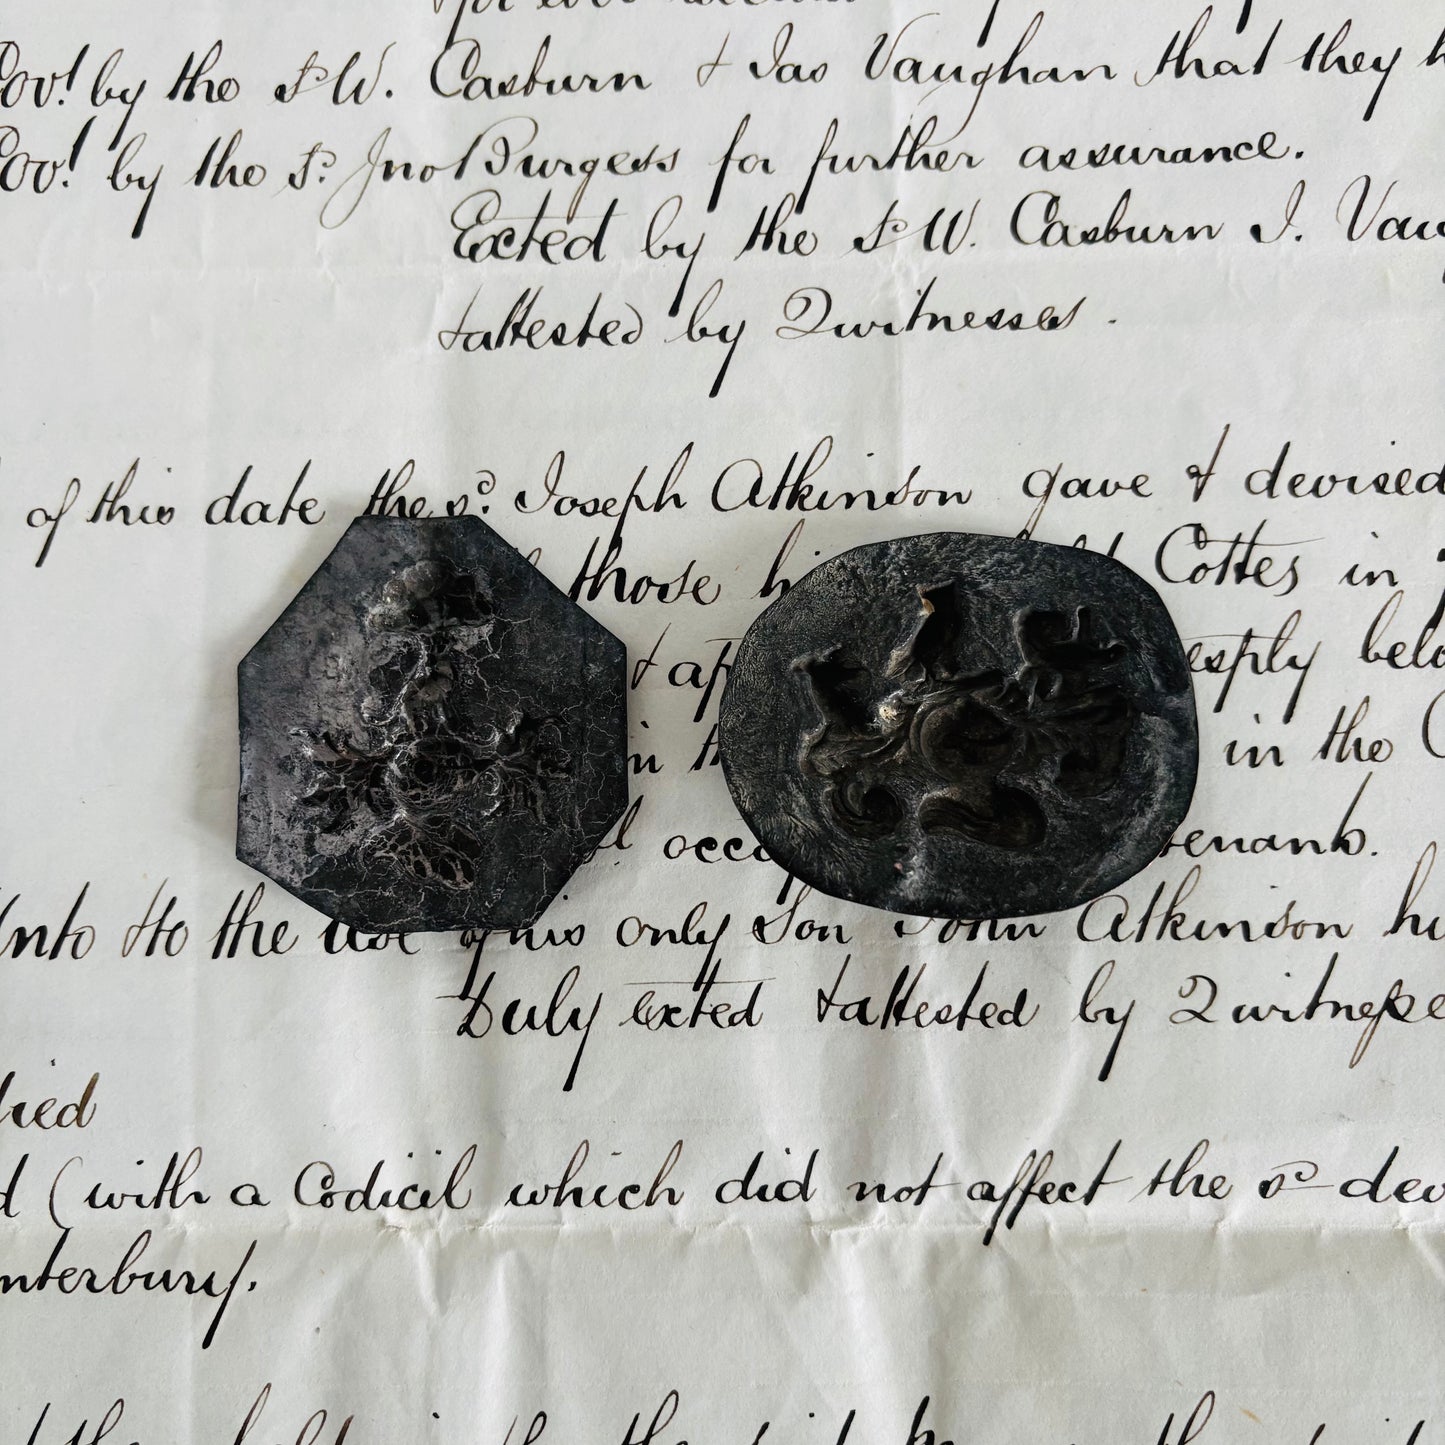 for ever
Cov! by the sd W. Casburn & Jas Vaughan that they
Cov! by the sd Jno Burgess for further assurance.
Exted by the sd W. Casburn J. Vau
& attested by 2 witnesses.
of this date the sd Joseph Atkinson gave & devised
those Cottes in
& esply belo
in the
occ tenants.
Unto & to the use of his only Son John Atkinson
Duly exted & attested by 2 witnesse
died
d (with a Codicil which did not affect the sd dev
nterbury.